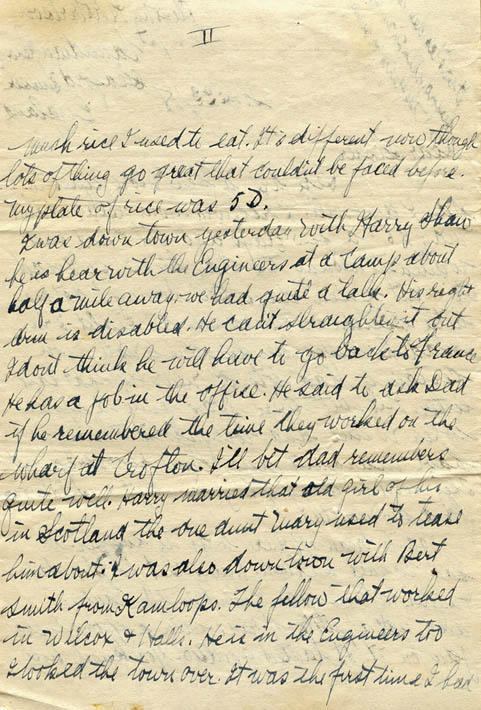 II
much rice I used to eat. It is different now though
lots of thing go great that couldn't be faced before.
My plate of rice was 5 D.
I was down town yesterday with Harry Shaw
he is hear with the Engineers at a Camp about
half a mile away. we had quite a talk. His right
arm is disabled. He can't straighten it out
I dont think he will have to go back to France
He has a job in the office. He said to ask Dad
if he remembered the time they worked on the
wharf at Crofton. I'll bet dad remembers
quite well. Harry married that old girl of his
in Scotland the one Aunt Mary used to tease
him about. I was also down town with Bert
Smith from Kamloops. The fellow that worked
in Wilcox & Halls. He is in the Engineers too
I looked the town over. It was the first time I had